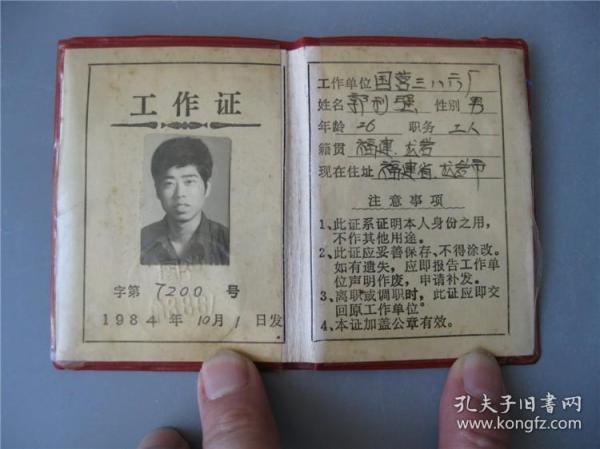 工作证
字第 7200 号
1984年 10月 1 日发
工作单位 国营三八六厂
姓名 郭利强 性别 男
年龄 26 职务 工人
籍贯 福建 龙岩
现在住址 福建省龙岩市
注意事项
1、此证系证明本人身份之用，
不作其他用途。
2、此证应妥善保存、不得涂改。
如有遗失，应即报告工作单
位声明作废，申请补发。
3、离职或调职时，此证应即交
回原工作单位。
4、本证加盖公章有效。
孔夫子旧书网
www.kongfz.com